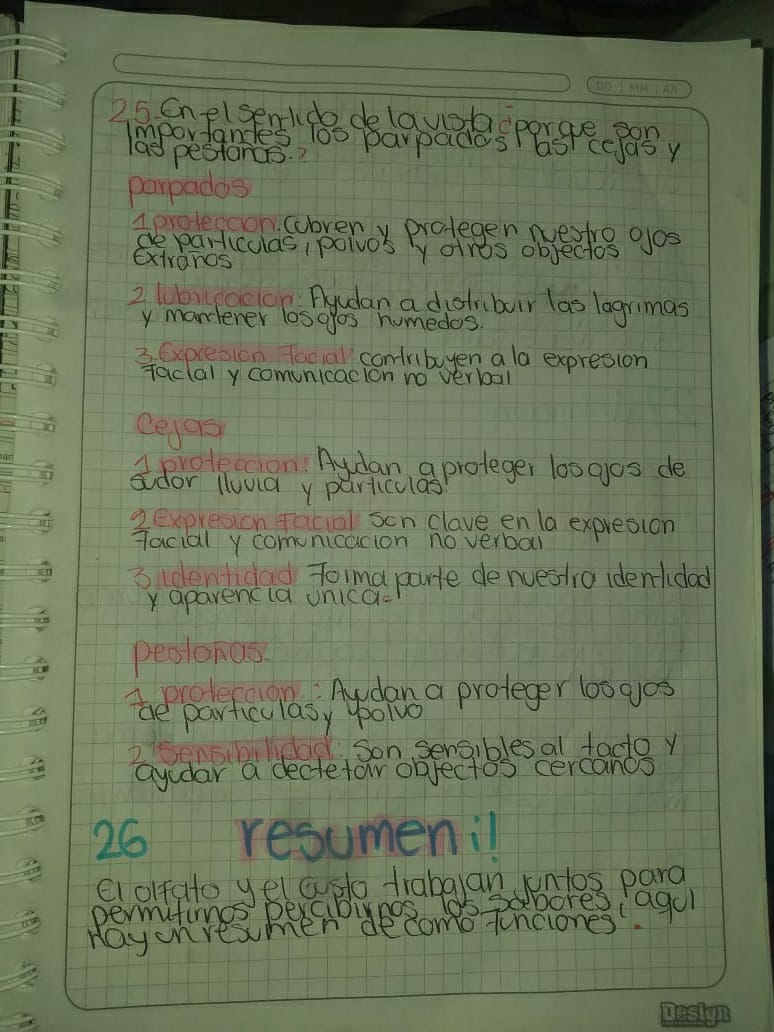 DD | MM | AA
25. En el sentido de la vista ¿porque son
importantes los parpados las cejas y
las pestañas.?
parpados
1 proteccion. cubren y protegen nuestro ojos
de particulas, polvos y otros objectos
Extraños
2 lubricacion: Ayudan a distribuir las lagrimas
y mantener los ojos humedos.
3. Expresion facial contribuyen a la expresion
facial y comunicacion no verbal
Cejas
1 proteccion: Ayudan a proteger los ojos de
sudor lluvia y particulas.
2 Expresion facial son clave en la expresion
facial y comunicacion no verbal
3. identidad Forma parte de nuestra identidad
y aparencia unica.
pestañas.
1 proteccion: Ayudan a proteger los ojos
de particulas y polvo
2 Sensibilidad: Son sensibles al tacto y
ayudar a dectetar objectos cercanos
26 resumen ¡!
El olfato y el Gusto trabajan juntos para
permitirnos percibirnos los sabores, aqui
Hay un resumen de como funciones.
Design